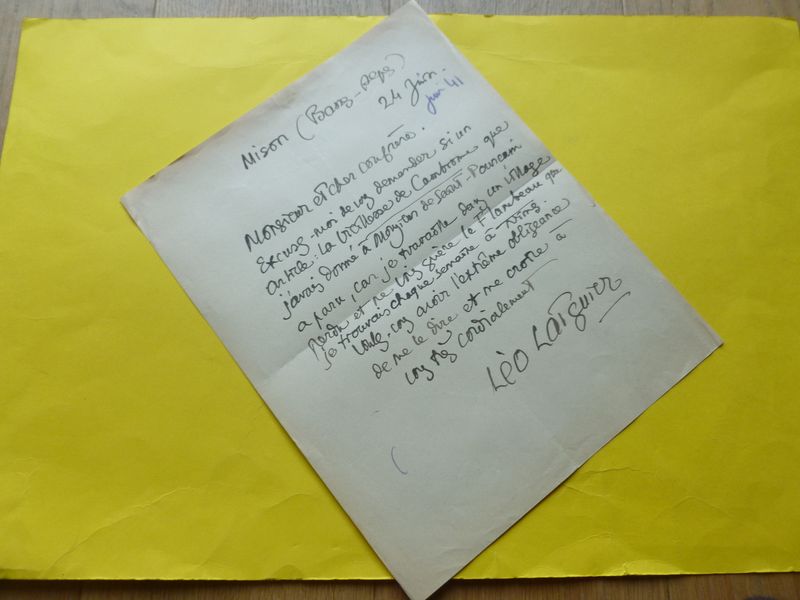 Mison (Bass-Alpes)
24 Juin.
juin 41
Monsieur et cher confrère.
Excusez-moi de vous demander si un
article: La Vieillesse de Cambronne que
j'avais donné à Monsieur de Saint-Pourcain
a paru, car je travaille dans un village
perdu et ne vois guère le Flambeau que
je trouvais chaque semaine à Nîmes.
Voulez-vous avoir l'extrême obligeance
de me le dire et me croire à
vous très cordialement
Léo Larguier